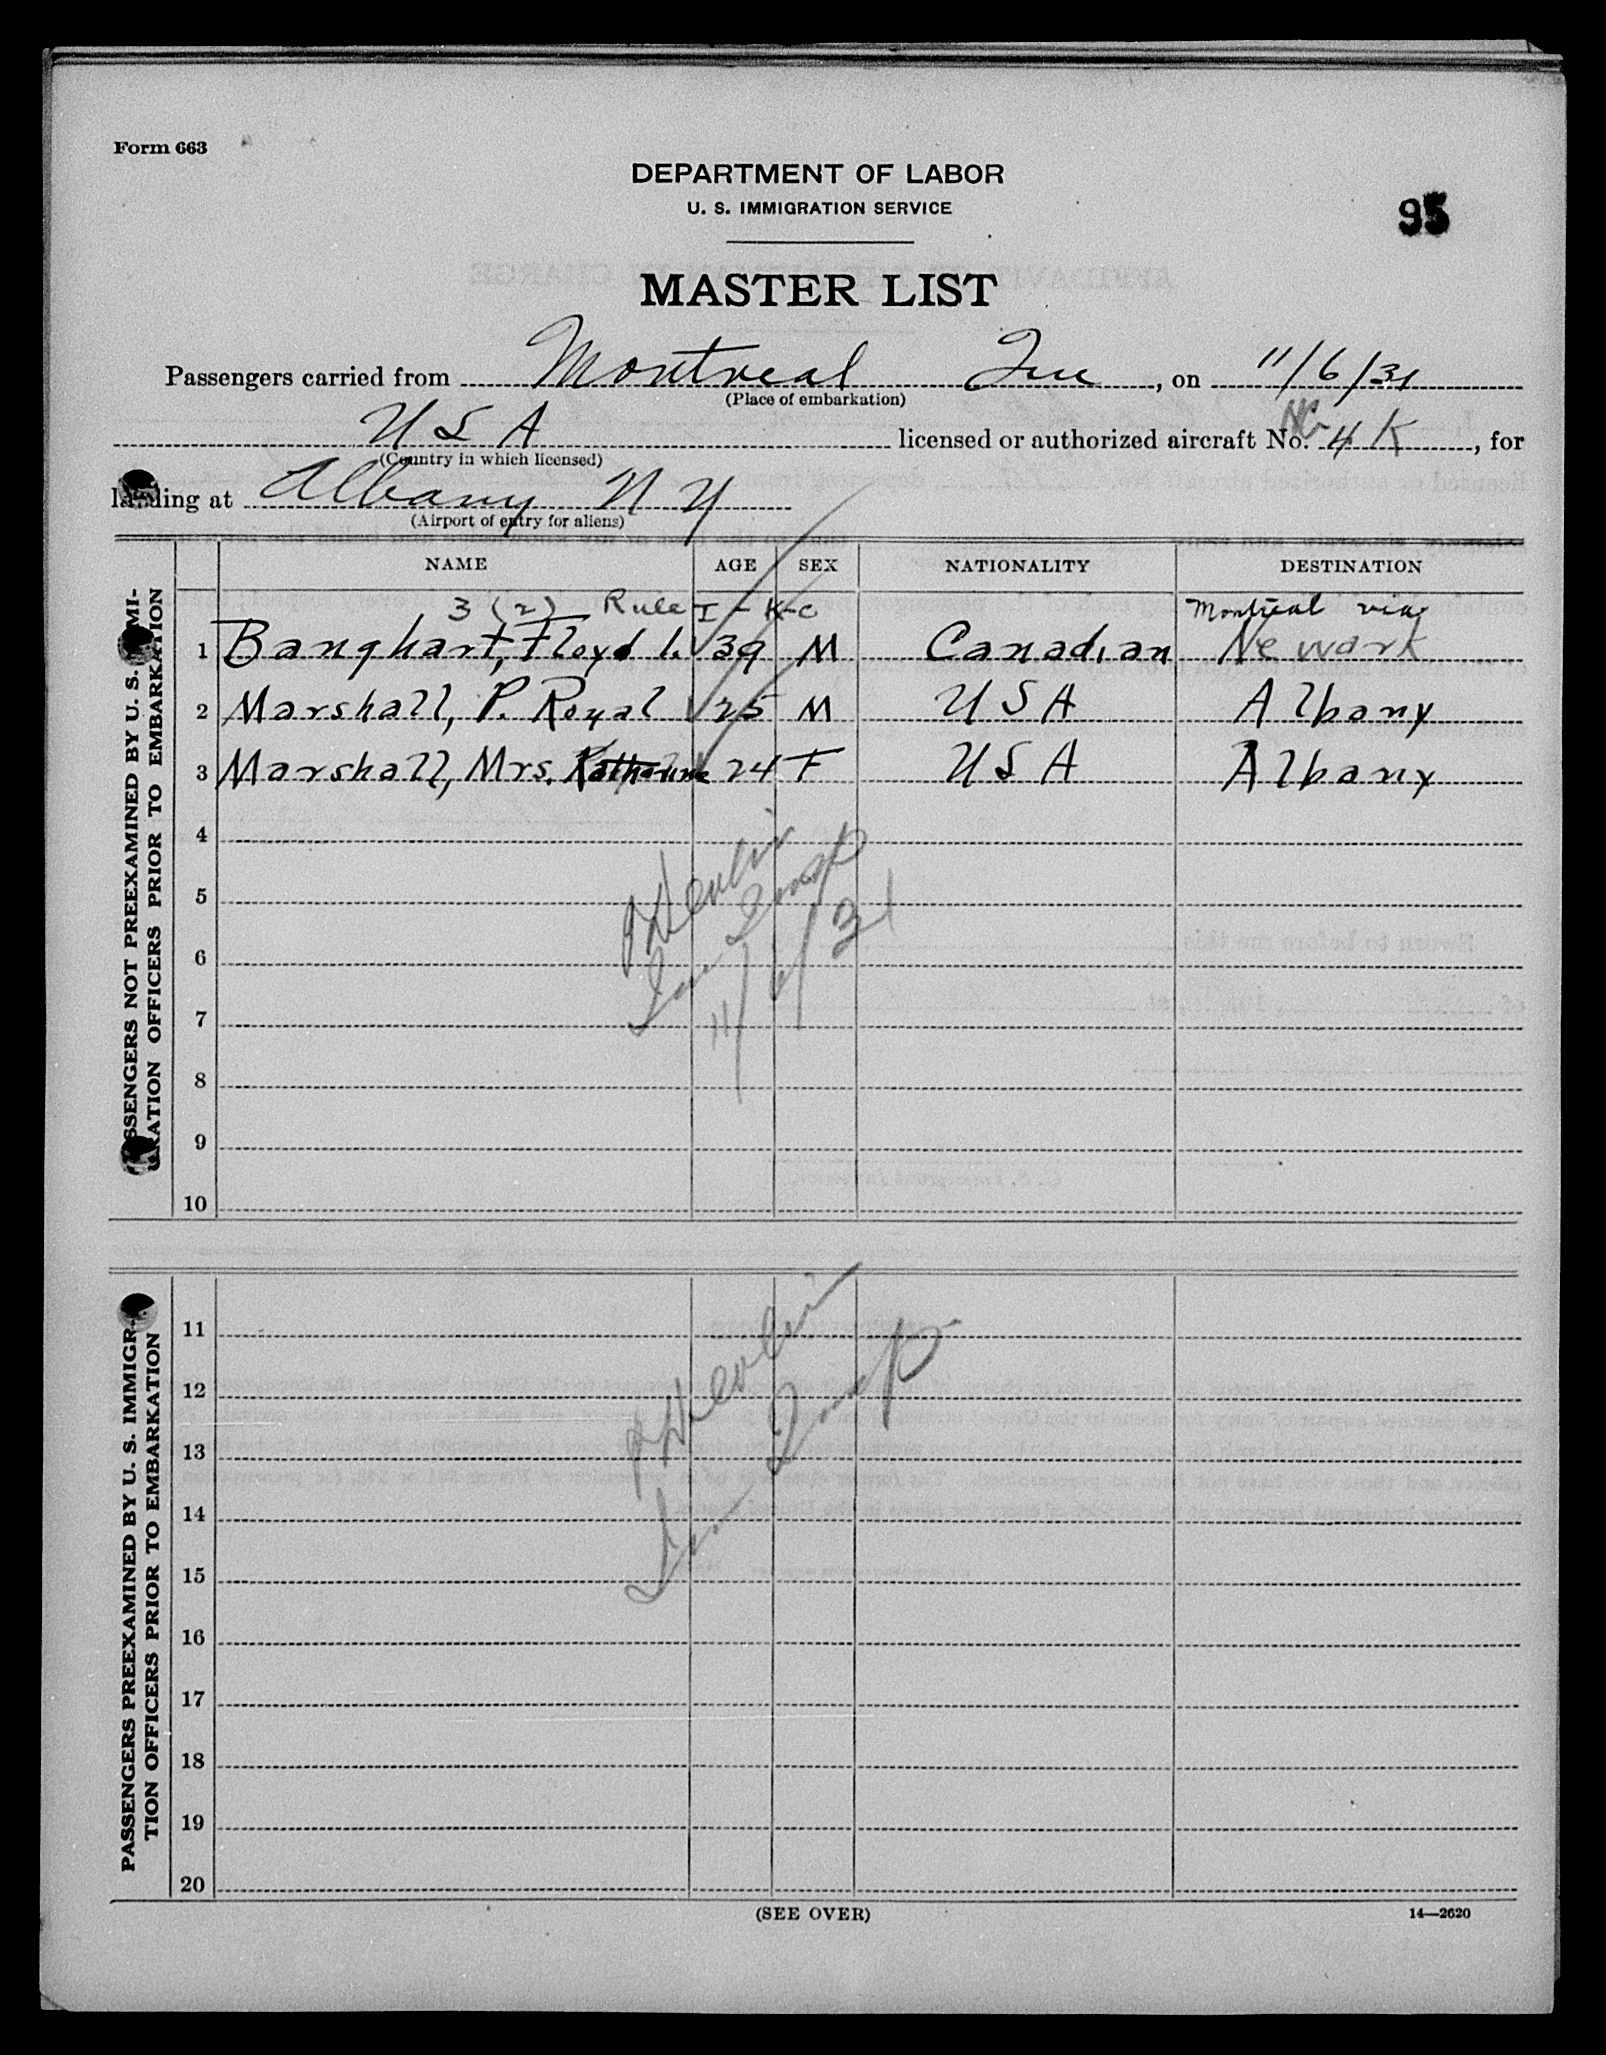 Form 663
DEPARTMENT OF LABOR
U. S. IMMIGRATION SERVICE
95
MASTER LIST
Passengers carried from Montreal Que, on 11/6/31
(Place of embarkation)
U S A licensed or authorized aircraft No. NC 4 K, for
(Country in which licensed)
landing at Albany N Y
(Airport of entry for aliens)
NAME AGE SEX NATIONALITY DESTINATION
3 (2) Rule I - K-C Montreal via
1 Banghart, Floyd L. 39 M Canadian Newark
2 Marshall, P. Royal 25 M U S A Albany
3 Marshall, Mrs. Katherine 24 F U S A Albany
4
5
6
7
8
9
10
PASSENGERS NOT PREEXAMINED BY U. S. IMMI-
GRATION OFFICERS PRIOR TO EMBARKATION
Devlin
Imm Insp
11/6/31
11
12
13
14
15
16
17
18
19
20
PASSENGERS PREEXAMINED BY U. S. IMMIGRA-
TION OFFICERS PRIOR TO EMBARKATION
Devlin
Imm Insp
(SEE OVER)
14—2620